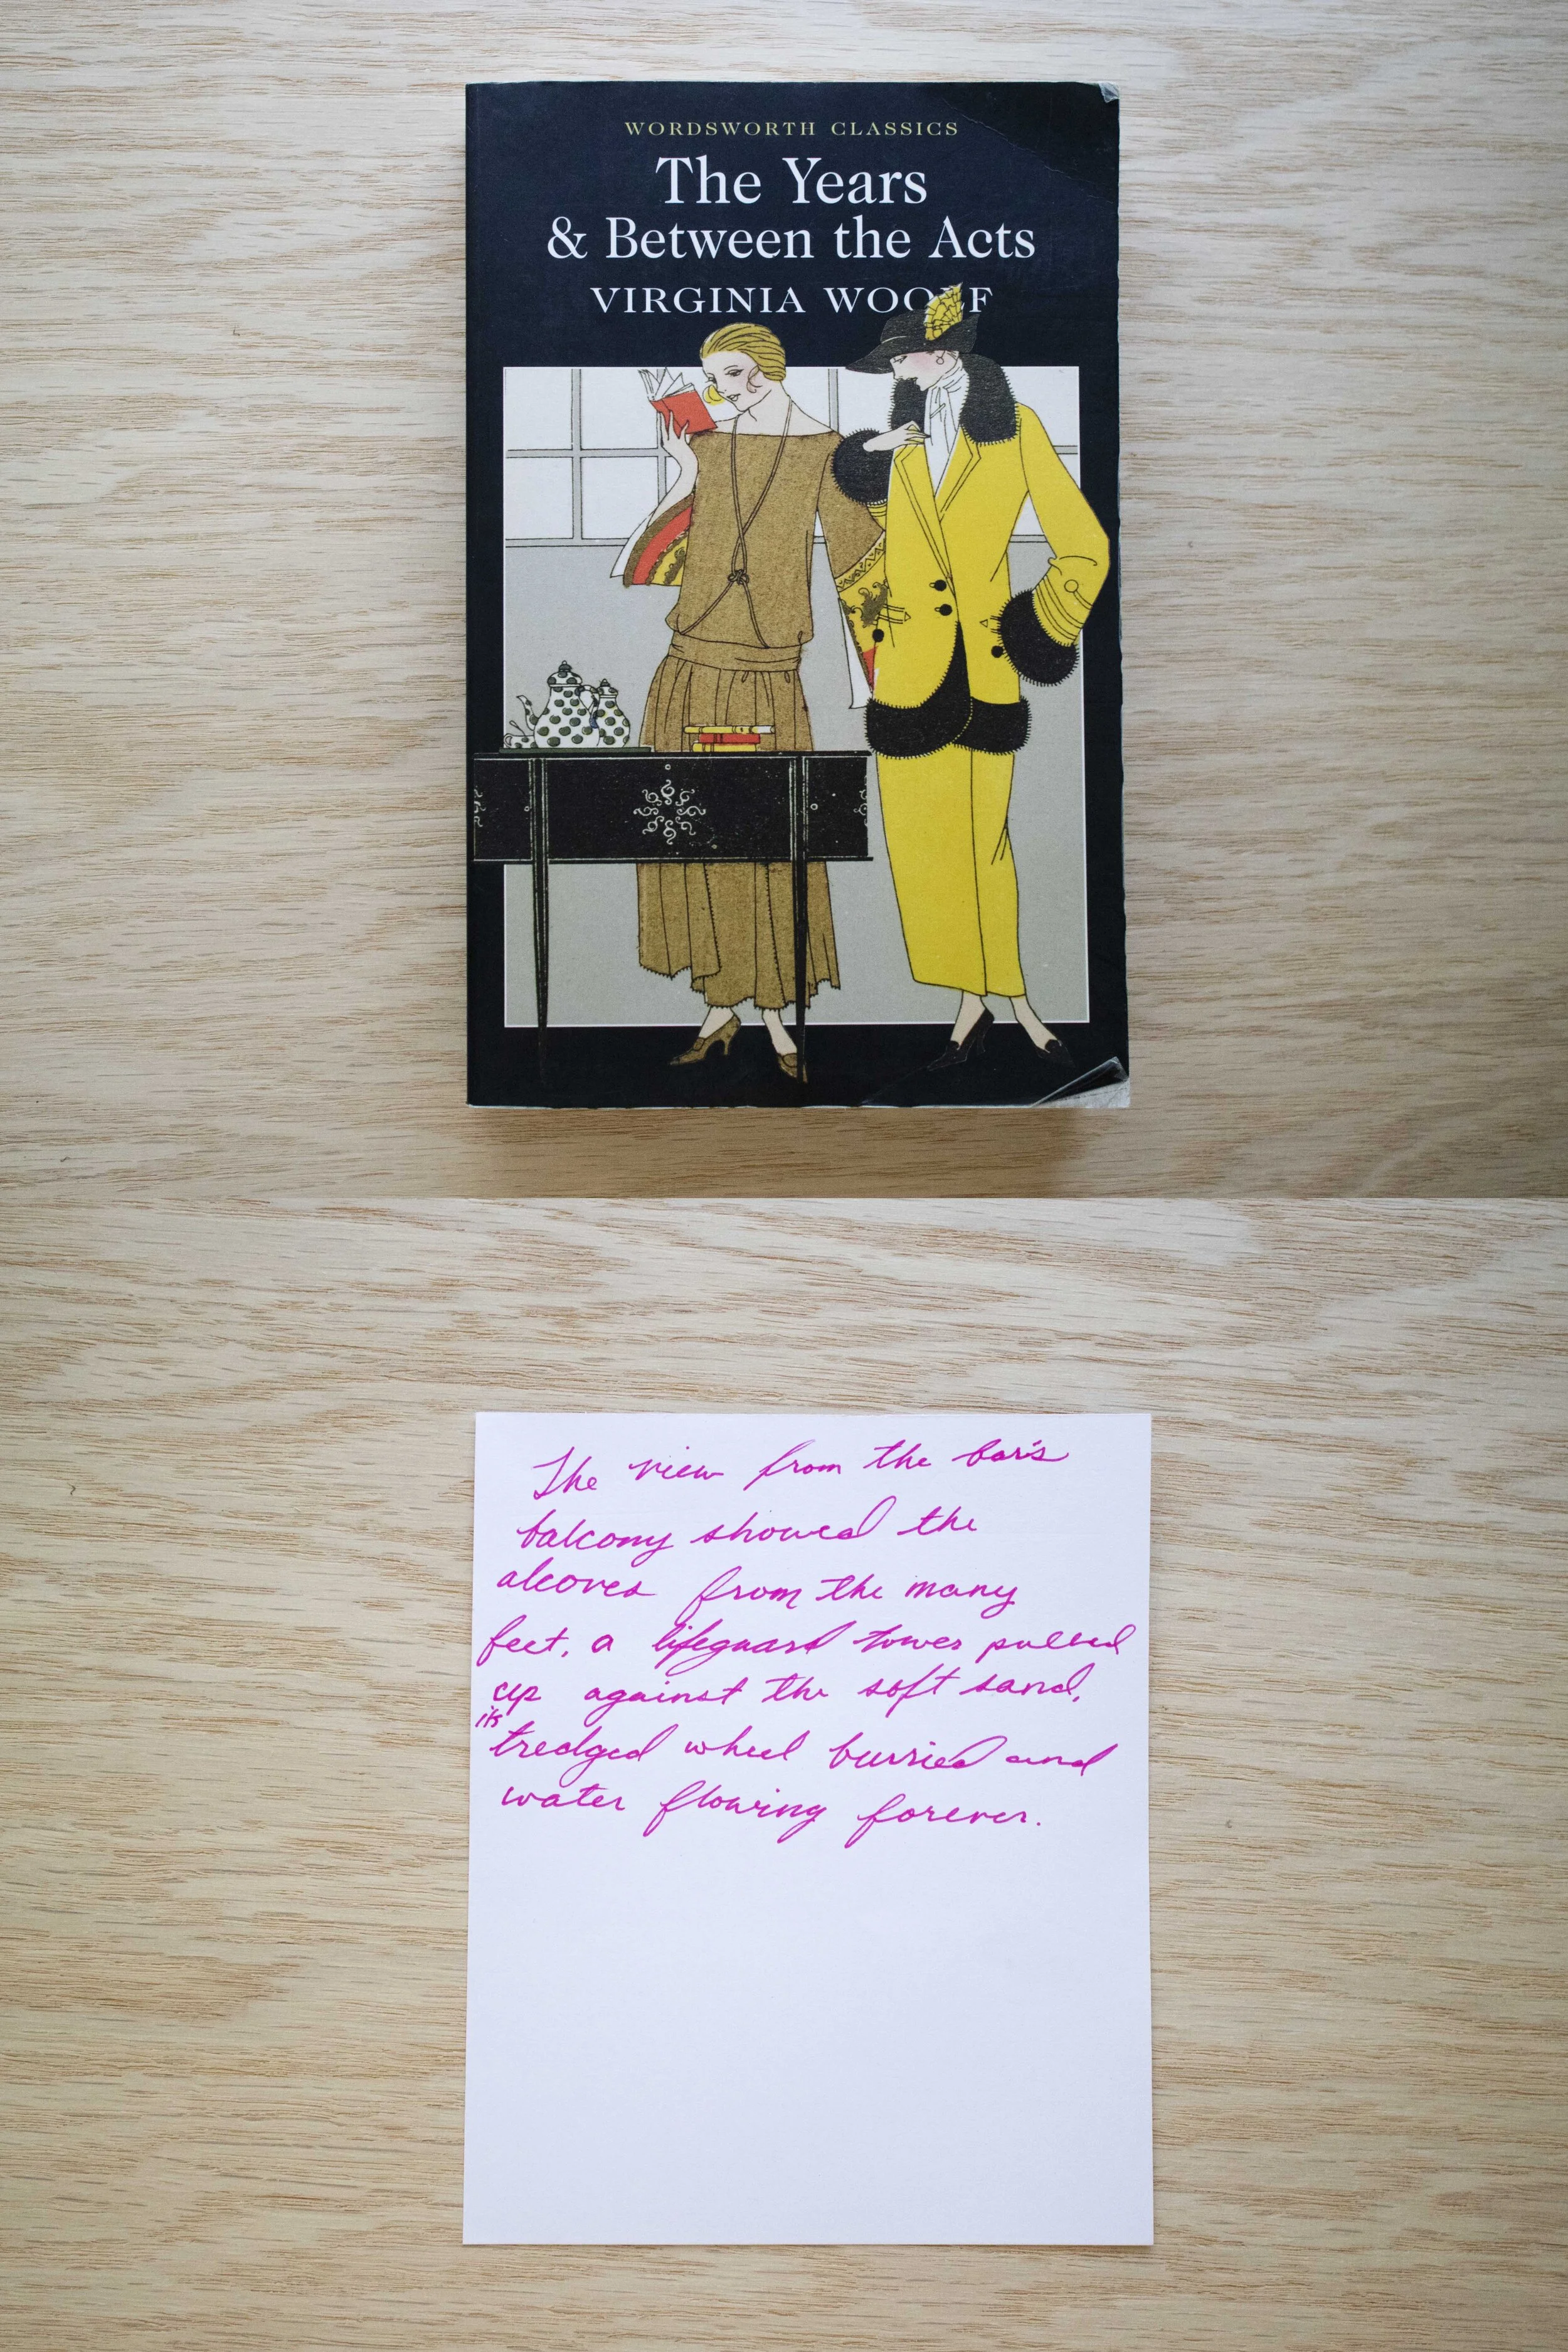 WORDSWORTH CLASSICS
The Years
& Between the Acts
VIRGINIA WOOLF
The view from the bar's
balcony showed the
alcoves from the many
feet, a lifeguard tower pulled
up against the soft sand,
its
tredged wheel burried and
water flowing forever.